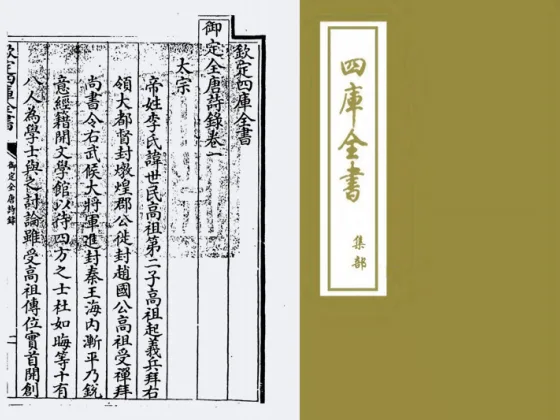 欽定四庫全書
御定全唐詩錄卷一
太宗
帝姓李氏諱世民高祖第二子高祖起義兵拜右
領大都督封燉煌郡公徙封趙國公高祖受禪拜
尚書令右武候大將軍進封秦王海內漸平乃銳
意經籍開文學館以待四方之士杜如晦等十有
八人為學士與之討論雖受高祖傳位實首開創
欽定四庫全書
御定全唐詩錄
四庫全書
集部